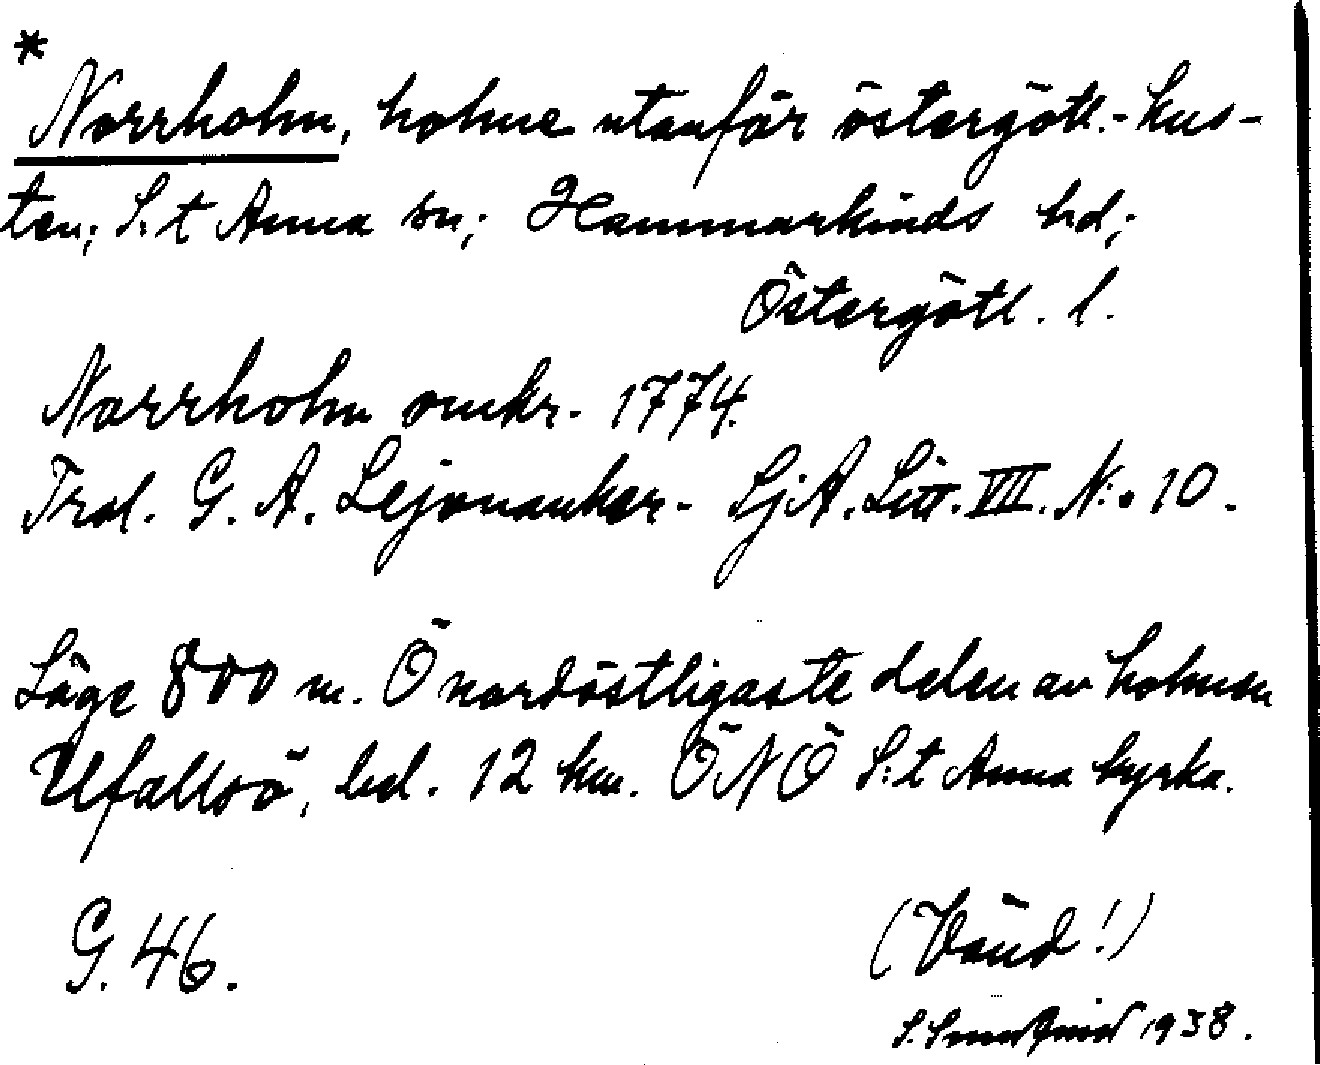 *
Norrholm, holme utanför östergötl.-kus-
ten; S:t Anna sn; Hammarkinds hd;
Östergötl. l.
Norrholm omkr. 1774.
Fral. G. A. Lejonanker. SjA. Litt. VII. N:o 10.
Läge 800 m. Ö nordöstligaste delen av holmen
Ulfallsö, bel. 12 km. ÖNÖ S:t Anna kyrka.
G. 46.
(Vänd!)
S. 1938.